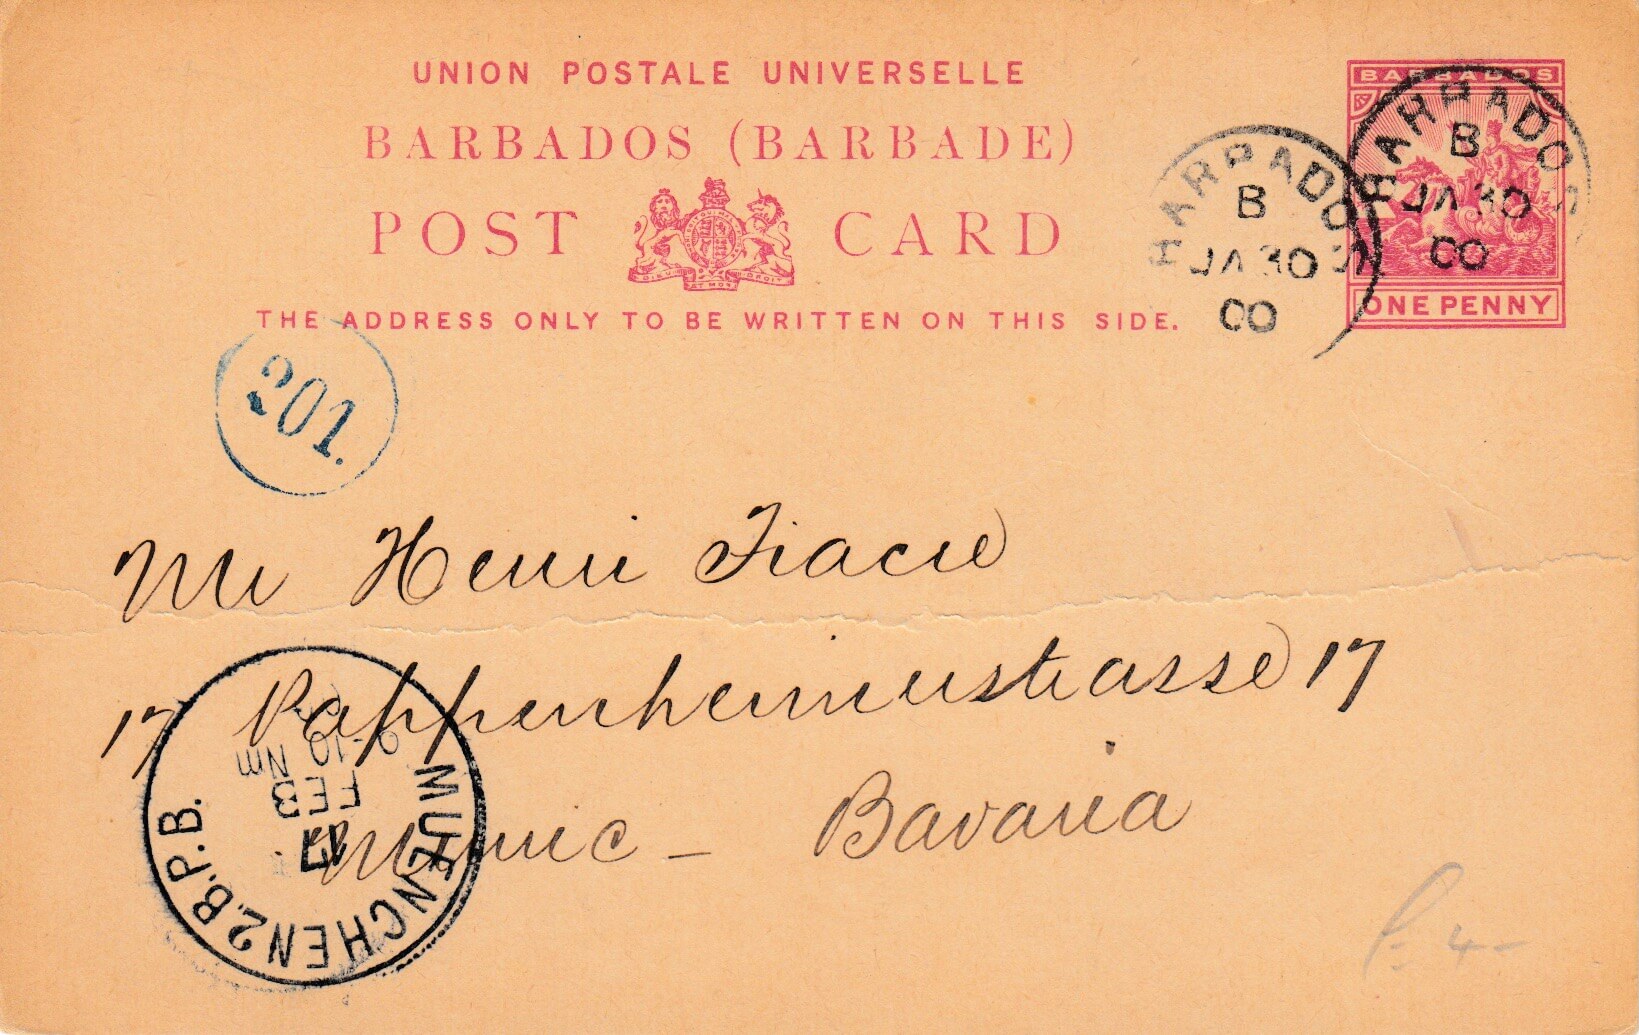 UNION POSTALE UNIVERSELLE
BARBADOS (BARBADE)
POST CARD
DIEU ET MON DROIT
THE ADDRESS ONLY TO BE WRITTEN ON THIS SIDE.
BARBADOS
ONE PENNY
BARBADOS
B
JA 30
00
BARBADOS
B
JA 30
00
201.
Mr Henri Fiacre
17 Pappenheimerstrasse 17
Munic - Bavaria
MUENCHEN 2.B.P.B.
17
FEB
9-10 Nm